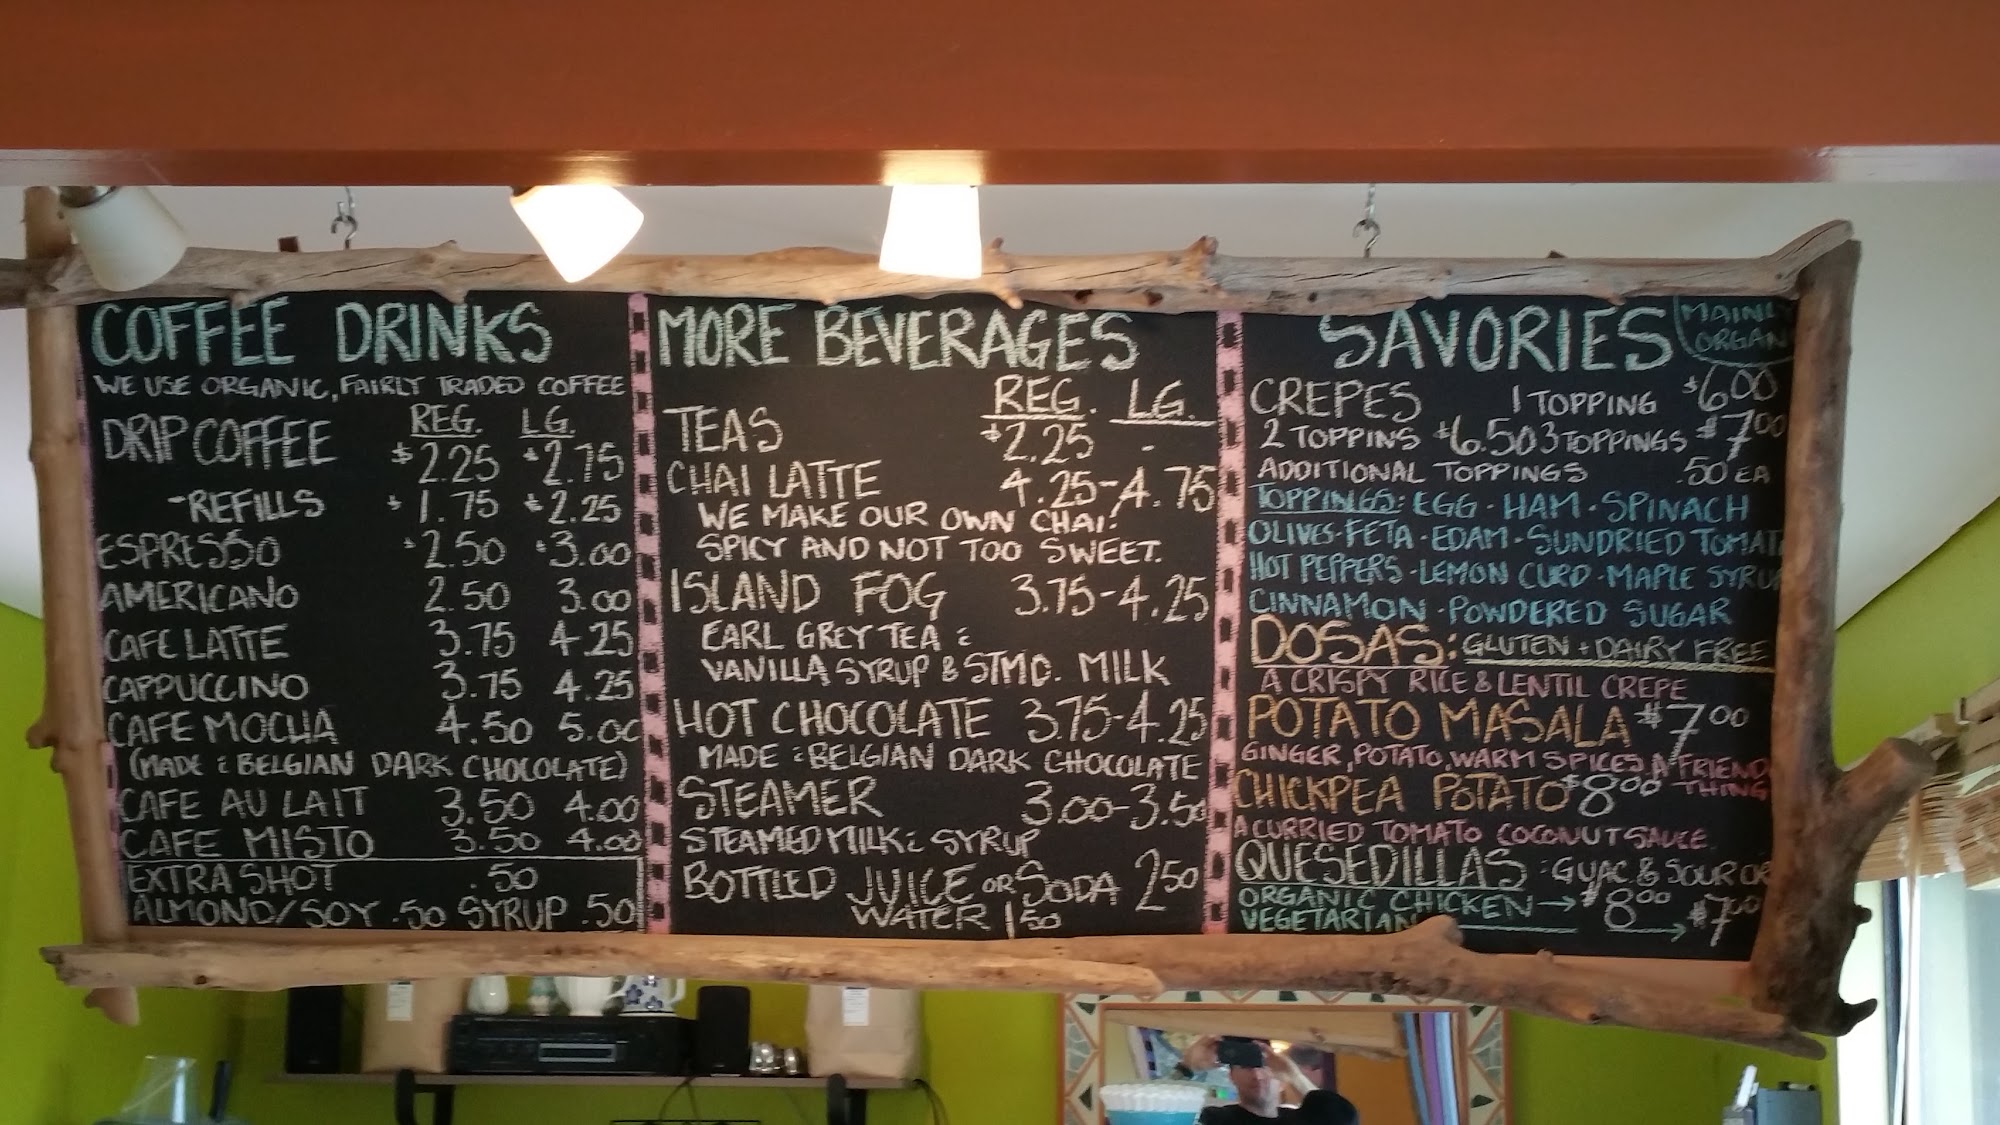 COFFEE DRINKS
WE USE ORGANIC, FAIRLY TRADED COFFEE
REG. LG.
DRIP COFFEE $2.25 $2.75
-REFILLS $1.75 $2.25
ESPRESSO $2.50 $3.00
AMERICANO 2.50 3.00
CAFE LATTE 3.75 4.25
CAPPUCCINO 3.75 4.25
CAFE MOCHA 4.50 5.00
(MADE c BELGIAN DARK CHOCOLATE)
CAFE AU LAIT 3.50 4.00
CAFE MISTO 3.50 4.00
EXTRA SHOT .50
ALMOND/SOY .50 SYRUP .50
MORE BEVERAGES
REG. LG.
TEAS $2.25 -
CHAI LATTE 4.25-4.75
WE MAKE OUR OWN CHAI:
SPICY AND NOT TOO SWEET.
ISLAND FOG 3.75-4.25
EARL GREY TEA c
VANILLA SYRUP & STMD. MILK
HOT CHOCOLATE 3.75-4.25
MADE c BELGIAN DARK CHOCOLATE
STEAMER 3.00-3.50
STEAMED MILK c SYRUP
BOTTLED JUICE OR SODA 2.50
WATER 1.50
SAVORIES
MAINLY
ORGAN
CREPES 1 TOPPING $6.00
2 TOPPINS $6.50 3 TOPPINGS $7.00
ADDITIONAL TOPPINGS .50 EA
TOPPINGS: EGG · HAM · SPINACH
OLIVES · FETA · EDAM · SUNDRIED TOMAT
HOT PEPPERS · LEMON CURD · MAPLE SYRUP
CINNAMON · POWDERED SUGAR
DOSAS: GLUTEN + DAIRY FREE
A CRISPY RICE & LENTIL CREPE
POTATO MASALA $7.00
GINGER, POTATO, WARM SPICES, A FRIEND
THING
CHICKPEA POTATO $8.00
A CURRIED TOMATO COCONUT SAUCE
QUESEDILLAS : GUAC & SOUR CR
ORGANIC CHICKEN → $8.00
VEGETARIAN → $7.00